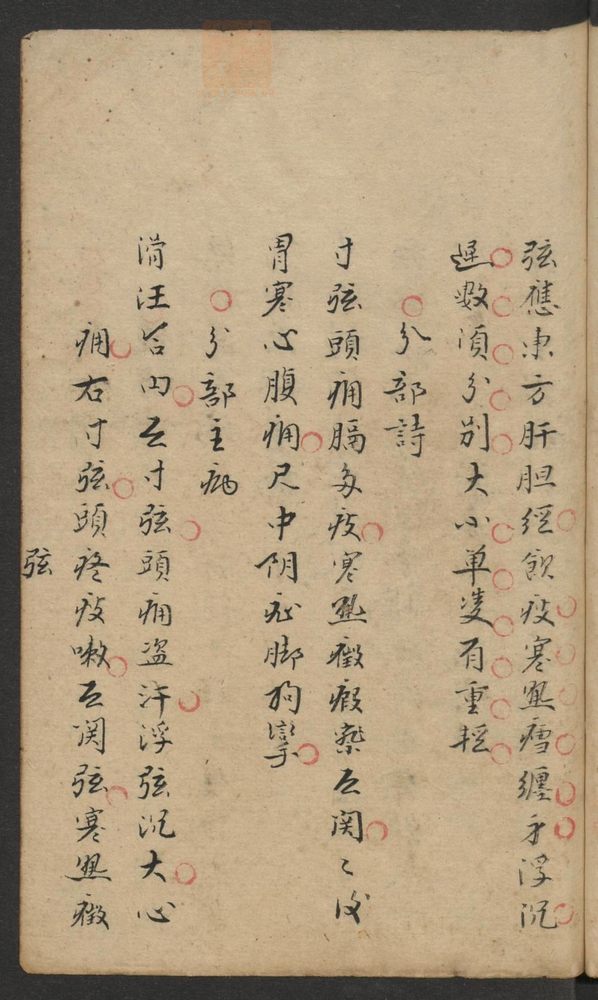 弦應東方肝胆經飲痰寒熱瘧纏身浮沉
遲數須分別大小单雙有重輕
○分部詩
寸弦頭痛膈多痰寒熱癥瘕察左関〻后
胃寒心腹痛尺中阴疝脚拘攣
○分部主病
滑汪合内左寸弦頭痛盗汗浮弦沉大心
痛右寸弦頭疼痰嗽左関弦寒熱癥
弦